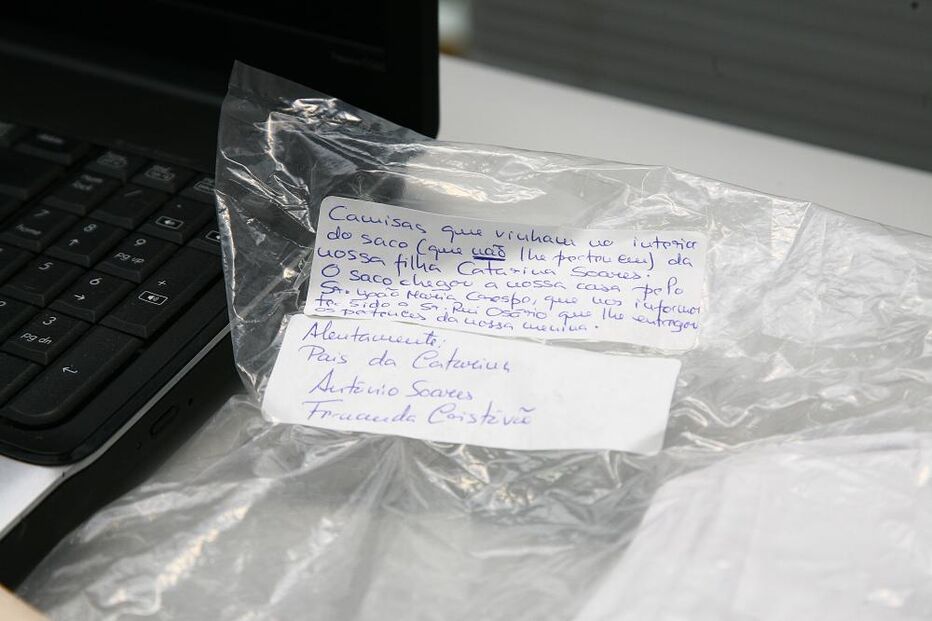 Camisas que vinham no interior
do saco (que não lhe pertencem) da
nossa filha Catarina Soares.
O saco chegou a nossa casa pelo
Sr. João Maria Crespo, que nos informou
ter sido o Sr. Rui Osório que lhe entregou
os pertences da nossa menina.
Atentamente:
Pais da Catarina
António Soares
Fernanda Cristóvão
7
8
9
pg up
5
6
+
3
pg dn